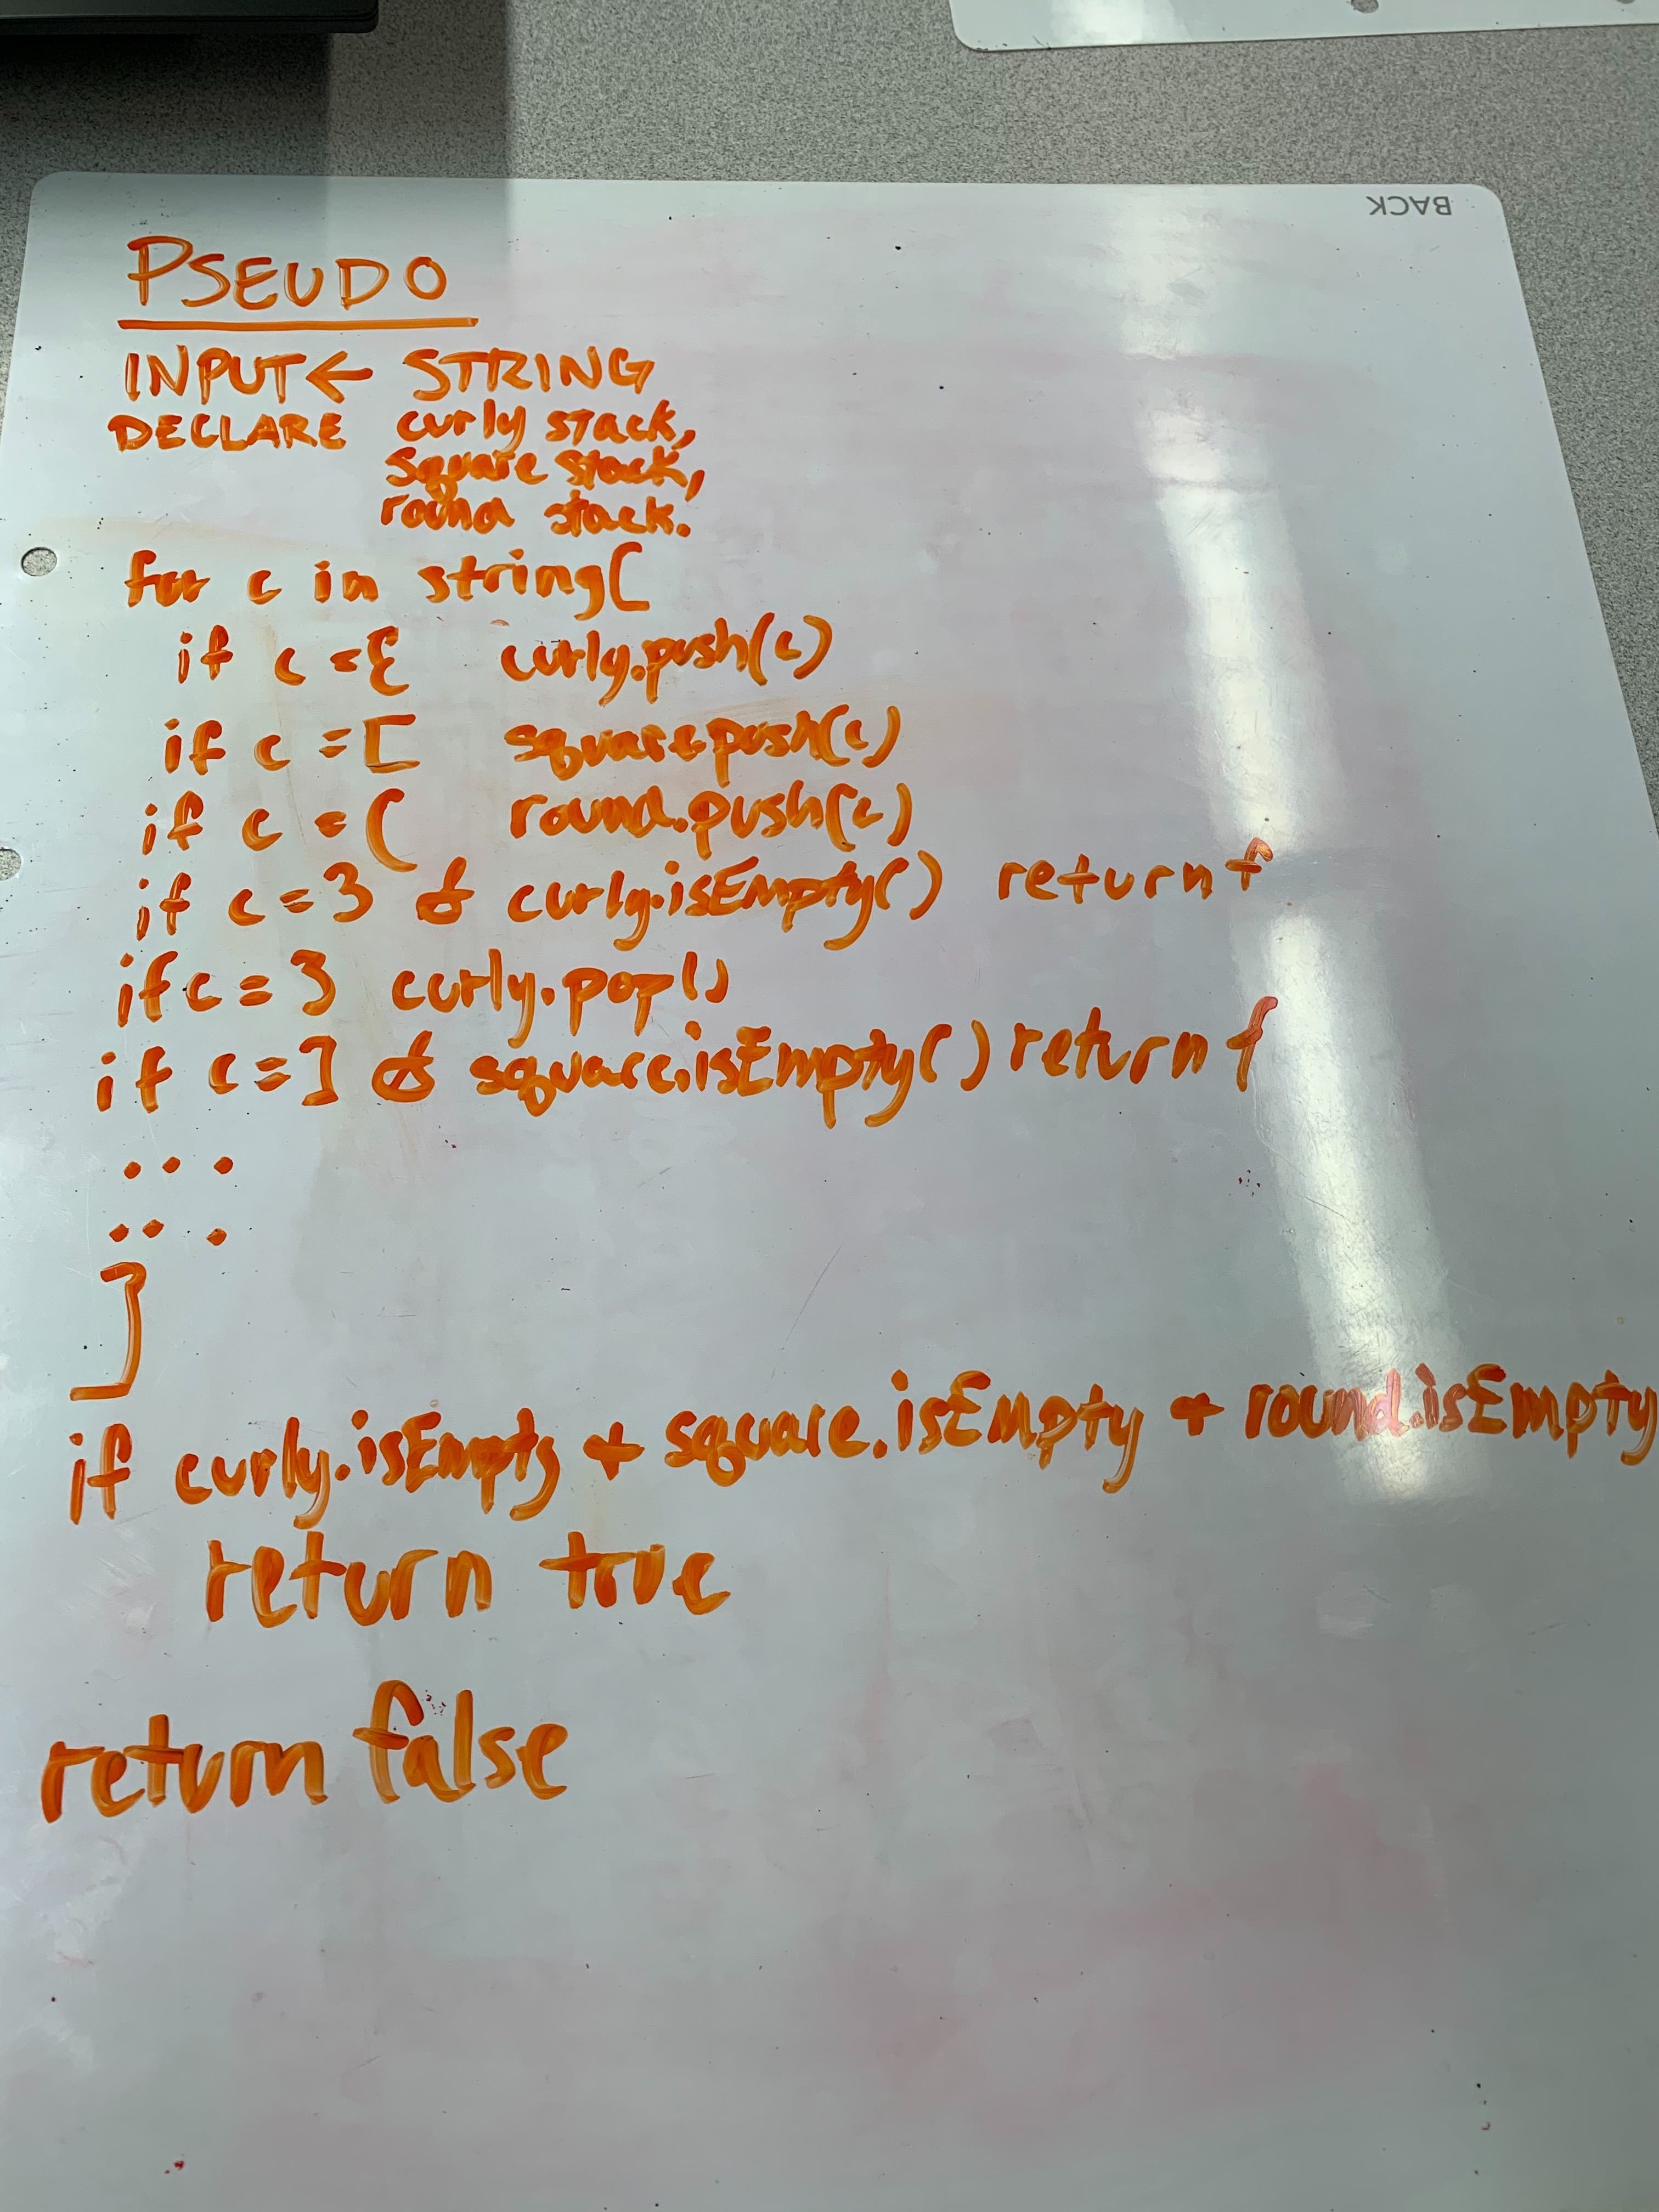 BACK
PSEUDO
INPUT← STRING
DECLARE curly stack,
square stack,
round stack.
for c in string[
if c = { curly.push(c)
if c = [ square.push(c)
if c = ( round.push(c)
if c = } & curly.isEmpty() return f
if c = } curly.pop()
if c = ] & square.isEmpty() return f
...
...
]
if curly.isEmpty + square.isEmpty + round.isEmpty
return true
return false